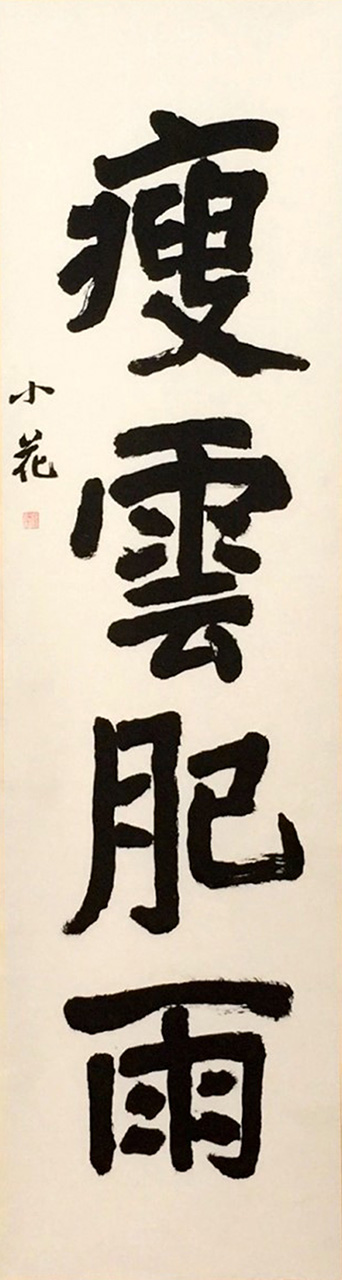 瘦雲肥雨
小花